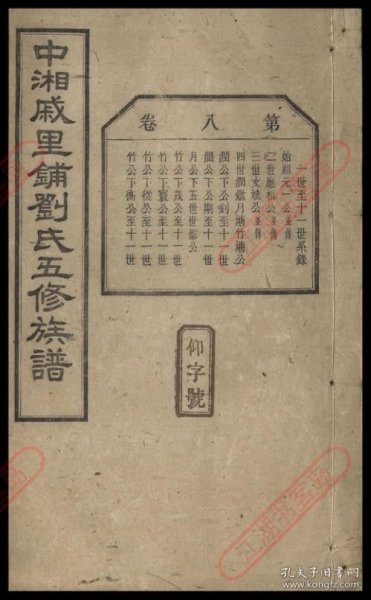 中湘戚里鋪劉氏五修族譜
第八卷
一世至十一世系錄
始祖元一公
三世文斌公
四世潤鑑月池竹池公
潤公下公釗至十一世
潤公下公期至十一世
月公下五世世彰公
竹公下茂公至十一世
竹公下寶公至十一世
竹公下從公至十一世
竹公下衡公至十一世
仰字號
孔夫子旧书网
www.kongfz.com